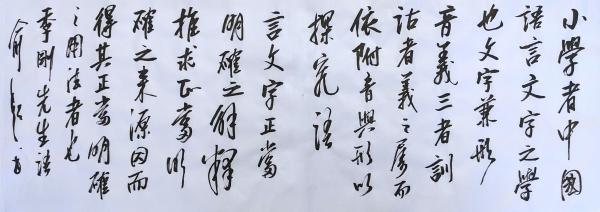 小學者中國
語言文字之學
也文字兼形
音義三者訓
詁者義之屬而
依附音與形以
探究語
言文字正當
明確之解釋
推求正當明
確之来源因而
得其正當明確
之用法者也
季剛先生語
俞